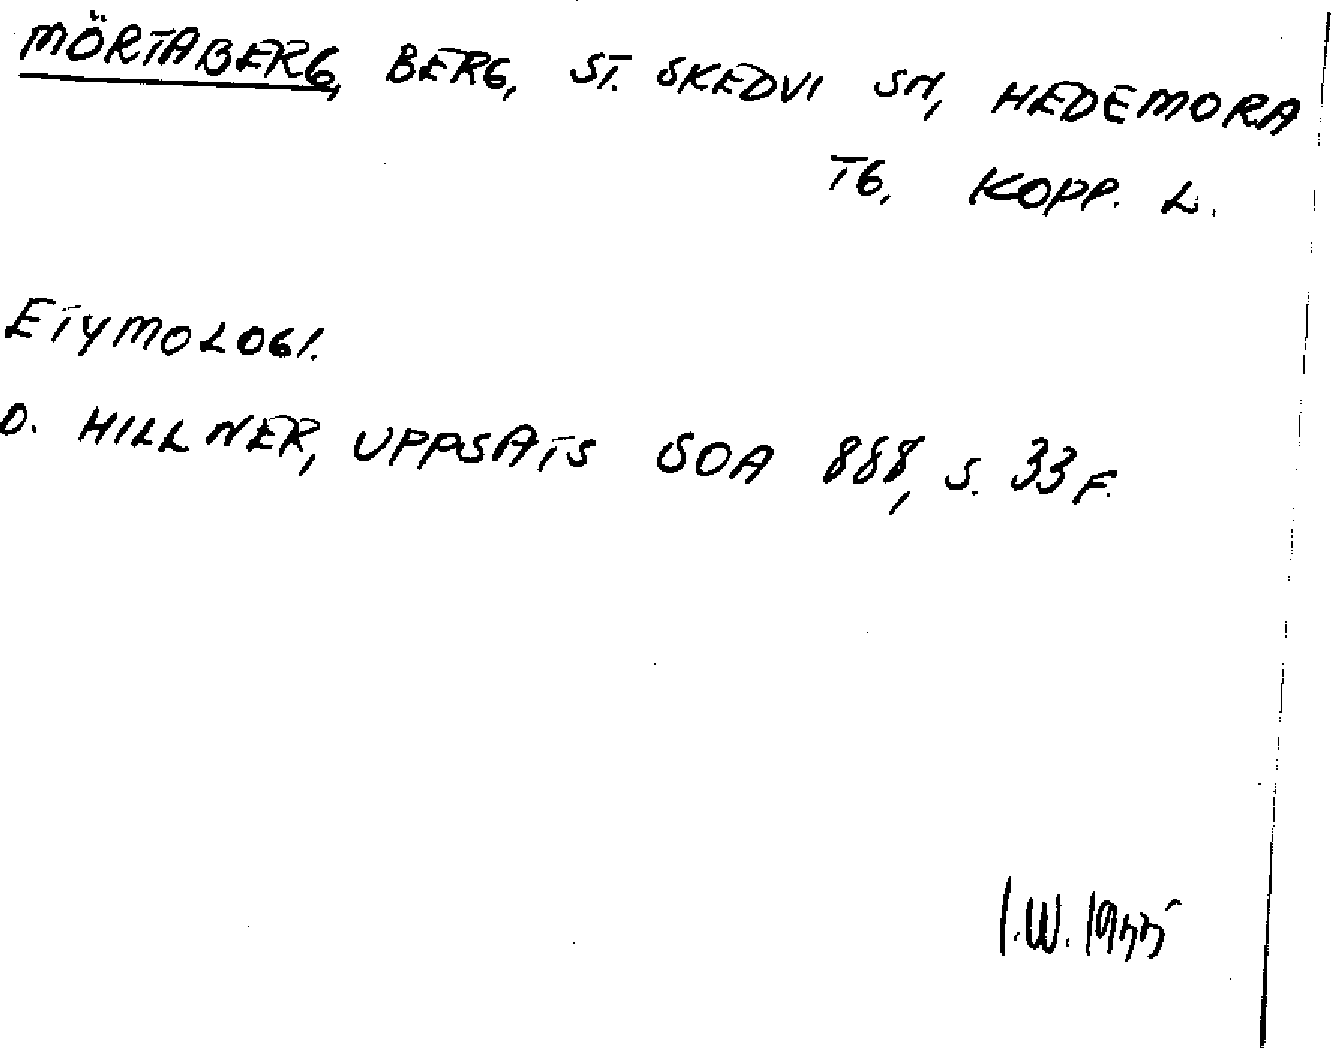 MÖRTABERG, BERG, ST. SKEDVI SN, HEDEMORA
TG, KOPP. L.
ETYMOLOGI.
O. HILLNER, UPPSATS SOA 888, S. 33 F.
I.W. 1977